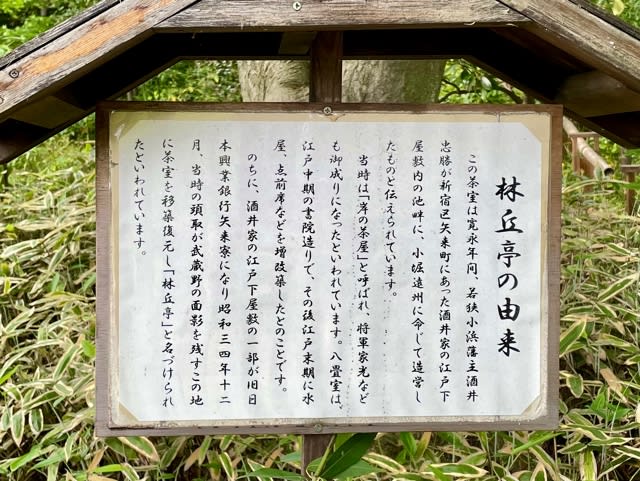 林丘亭の由来
この茶室は寛永年間、若狭小浜藩主酒井
忠勝が新宿区矢来町にあった酒井家の江戸下
屋敷内の池畔に、小堀遠州に命じて造営し
たものと伝えられています。
当時は「岸の茶屋」と呼ばれ、将軍家光など
も御成りになったといわれています。八畳室は、
江戸中期の書院造りで、その後江戸末期に水
屋、点前席などを増改築したとのことです。
のちに、酒井家の江戸下屋敷の一部が旧日
本興業銀行矢来寮になり昭和三四年十二
月、当時の頭取が武蔵野の面影を残すこの地
に茶室を移築復元し「林丘亭」と名づけられ
たといわれています。